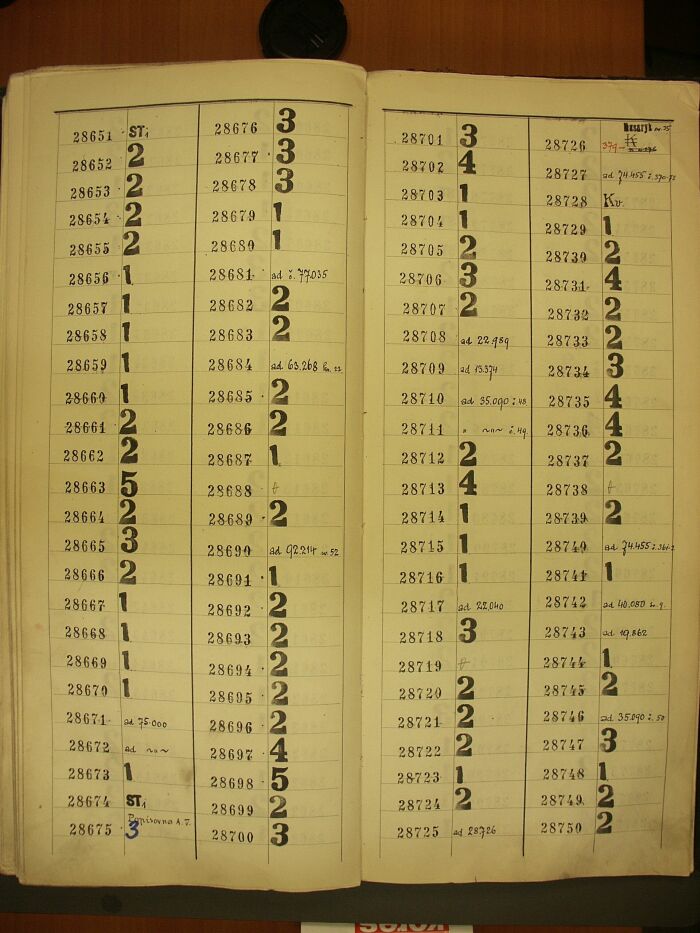 28651 ST1
28652 2
28653 2
28654 2
28655 2
28656 1
28657 1
28658 1
28659 1
28660 1
28661 2
28662 2
28663 5
28664 2
28665 3
28666 2
28667 1
28668 1
28669 1
28670 1
28671 ad 75.000
28672 ad ~"~
28673 1
28674 ST1
28675 3
28676 3
28677 3
28678 3
28679 1
28680 1
28681 ad č. 77.035
28682 2
28683 2
28684 ad 63.268
28685 2
28686 2
28687 1
28688 +
28689 2
28690 ad 92.214 w. 52
28691 1
28692 2
28693 2
28694 2
28695 2
28696 2
28697 4
28698 5
28699 2
28700 3
28701 3
28702 4
28703 1
28704 1
28705 2
28706 3
28707 2
28708 ad 22.989
28709 ad 13.374
28710 ad 35.090 č. 48
28711 " ~"~ č. 49
28712 2
28713 4
28714 1
28715 1
28716 1
28717 ad 22.040
28718 3
28719 +
28720 2
28721 2
28722 2
28723 1
28724 2
28725 ad 28726
Masaryk
28726
28727 ad 74.455
28728 Kv.
28729 1
28730 2
28731 4
28732 2
28733 2
28734 3
28735 4
28736 4
28737 2
28738 +
28739 2
28740 ad 74.455
28741 1
28742 ad 40.080
28743 ad 19.862
28744 1
28745 2
28746 ad 35.090 č. 50
28747 3
28748 1
28749 2
28750 2